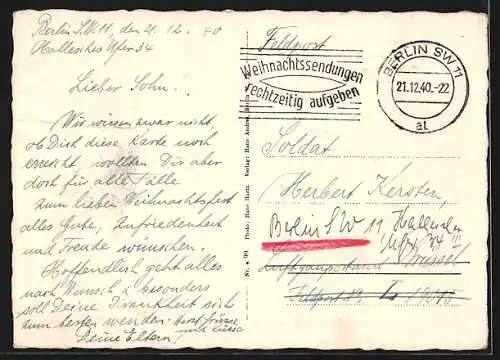 Berlin S.W. 11, den 21. 12. 40
Hallesches Ufer 34
Lieber Sohn!
Wir wissen zwar nicht,
ob Dich diese Karte noch
erreicht, wollten Dir aber
doch für alle Fälle
zum lieben Weihnachtsfest
alles Gute, Zufriedenheit
und Freude wünschen.
Hoffendlich geht alles
nach Wunsch u. besonders
soll Deine Krankheit sich
zum besten wenden. Herzl. Grüsse
und Küsse
Deine Eltern!
Photo: Hans Hartz. Verlag: Hans Andres, Berlin
Feldpost
Weihnachtssendungen
rechtzeitig aufgeben
BERLIN SW 11
21.12.40.-22
al
Soldat
Herbert Kersten,
Berlin SW 11, Hallesches
Ufer 34 III
Brüssel
Feldpost Nr. L